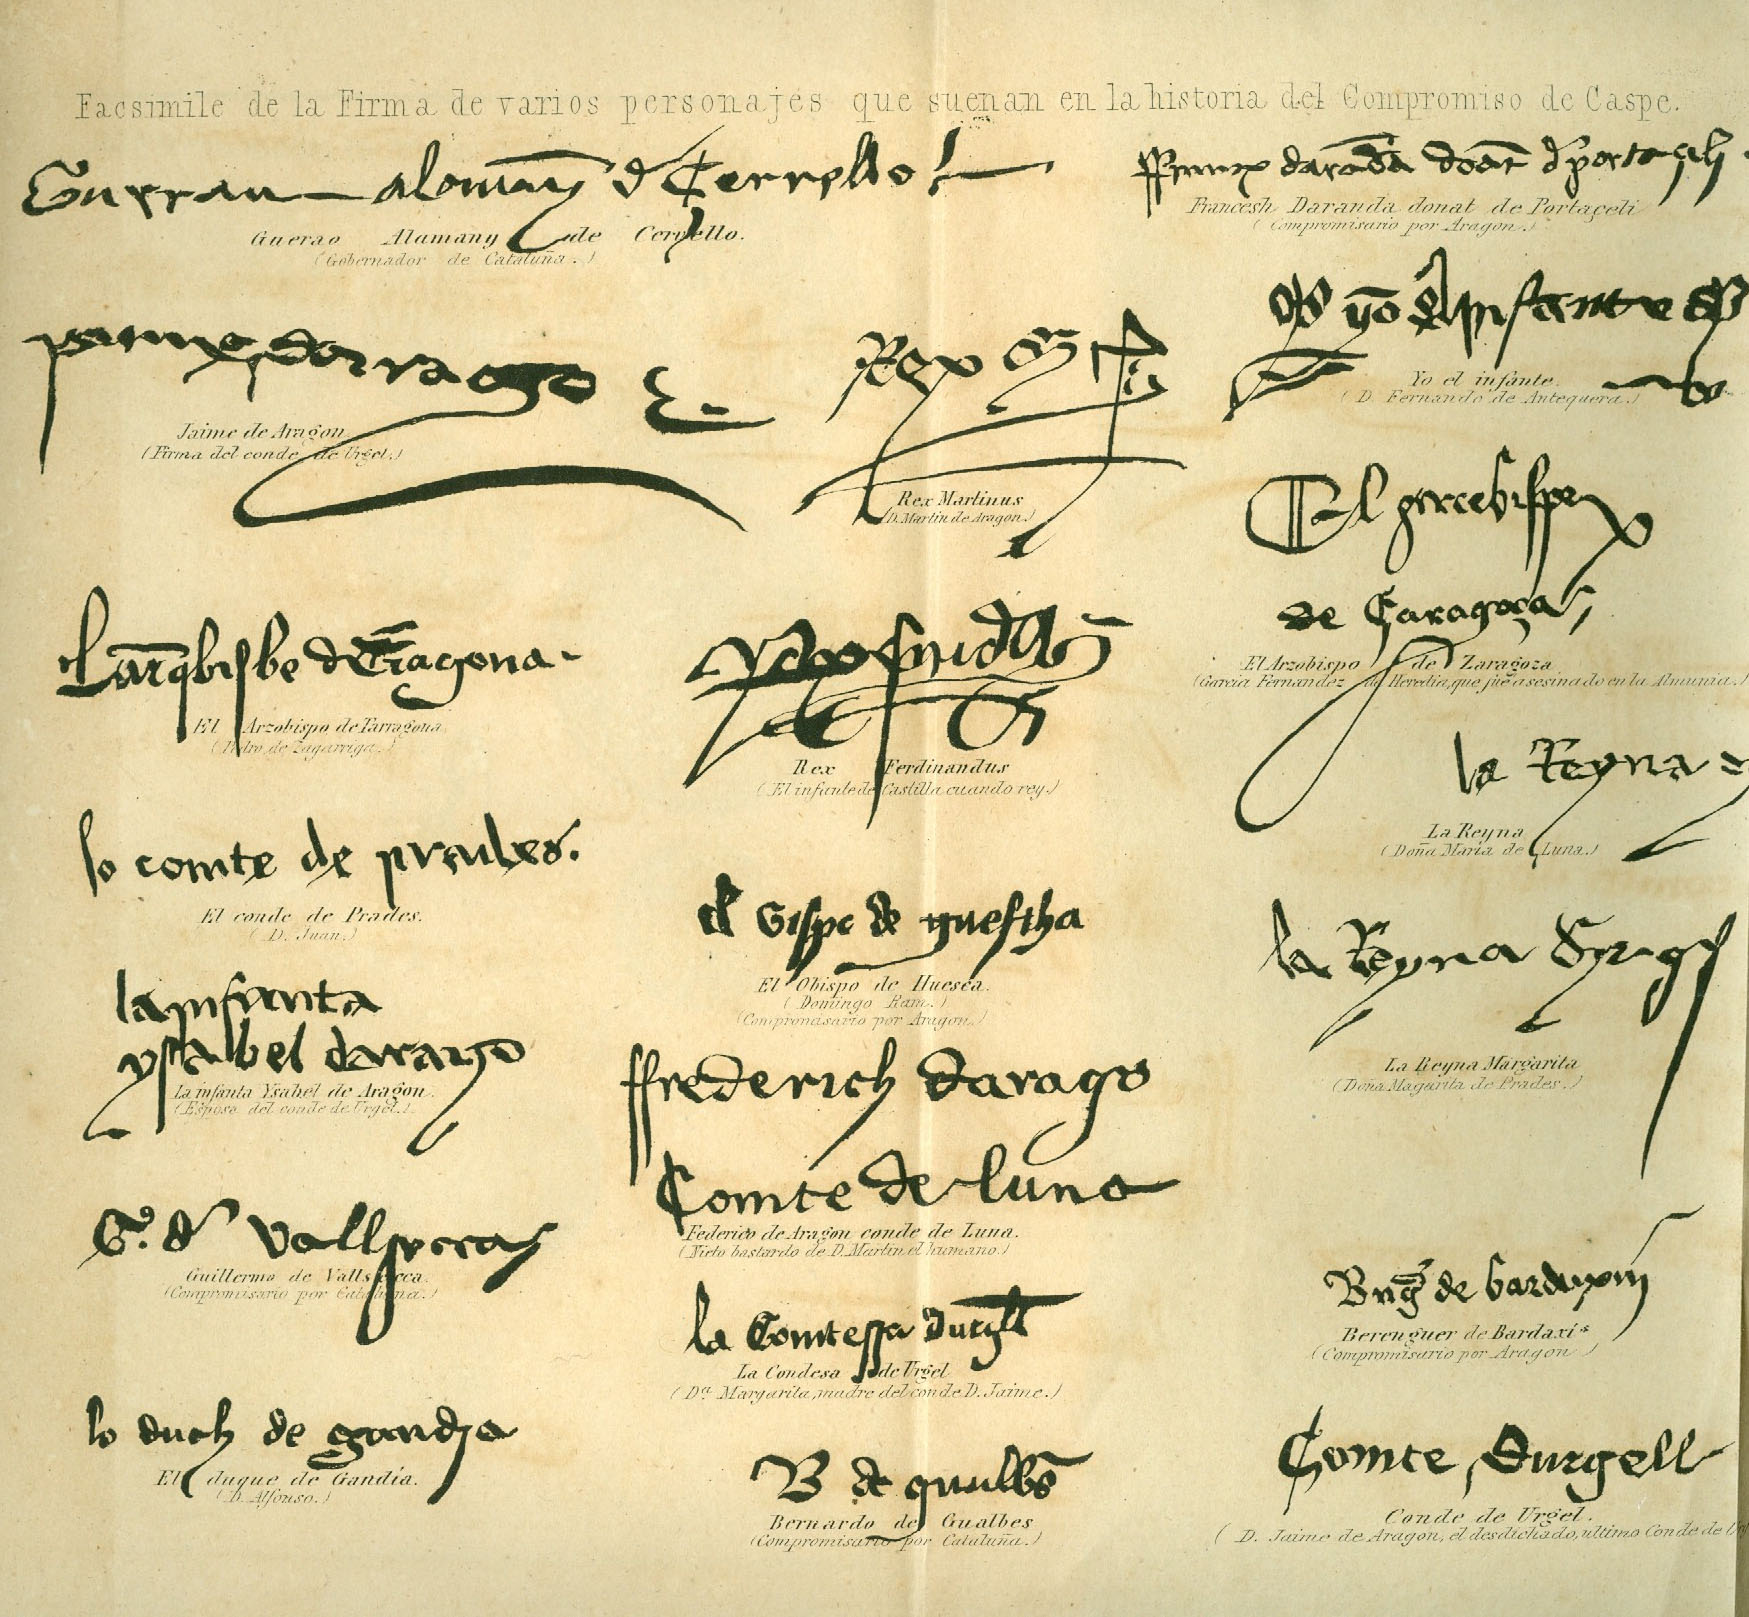 Facsimile de la Firma de varios personajes que suenan en la historia del Compromiso de Caspe.
Guerau alamany d Cervello
Guerao Alamany de Cervello.
(Gobernador de Cataluña.)
Francesh Daranda donat de Portaçeli
(Compromisario por Aragon.)
Jaime de Aragon
(Firma del conde de Urgel.)
Rex
Rex Martinus
(D. Martin de Aragon.)
yo el infante
Yo el infante.
(D. Fernando de Antequera.)
El arcebispe
de Çaragoça
El Arzobispo de Zaragoza
(Garcia Fernandez de Heredia, que fue asesinado en la Almunia.)
Larqbisbe de Tragona
El Arzobispo de Tarragona
(Pedro de Zagarriga.)
Rex Ferdinandus
(El infante de Castilla cuando rey.)
la Reyna
La Reyna
(Doña Maria de Luna.)
lo comte de prades.
El conde de Prades.
(D. Juan.)
el bispe de
El Obispo de Huesca.
(Domingo Ram.)
(Compromisario por Aragon.)
la Reyna
La Reyna Margarita
(Doña Magarita de Prades.)
la infanta
ysabel darago
La infanta Ysabel de Aragon.
(Esposa del conde de Urgel.)
ffrederich darago
Comte de luna
Federico de Aragon conde de Luna.
(Nieto bastardo de D. Martin el humano.)
G. d
Guillermo de Vallseca.
(Compromisario por Cataluña.)
la Comtessa durgll
La Condesa de Urgel
(Dª Margarita, madre del conde D. Jaime.)
de bardaxin
Berenguer de Bardaxis
(Compromisario por Aragon)
lo duch de gandia
El duque de Gandia.
(D. Alfonso.)
B de gualbs
Bernardo de Gualbes
(Compromisario por Cataluña.)
Comte Durgell
Conde de Urgel.
(D. Jaime de Aragon, el desdichado, ultimo Conde de